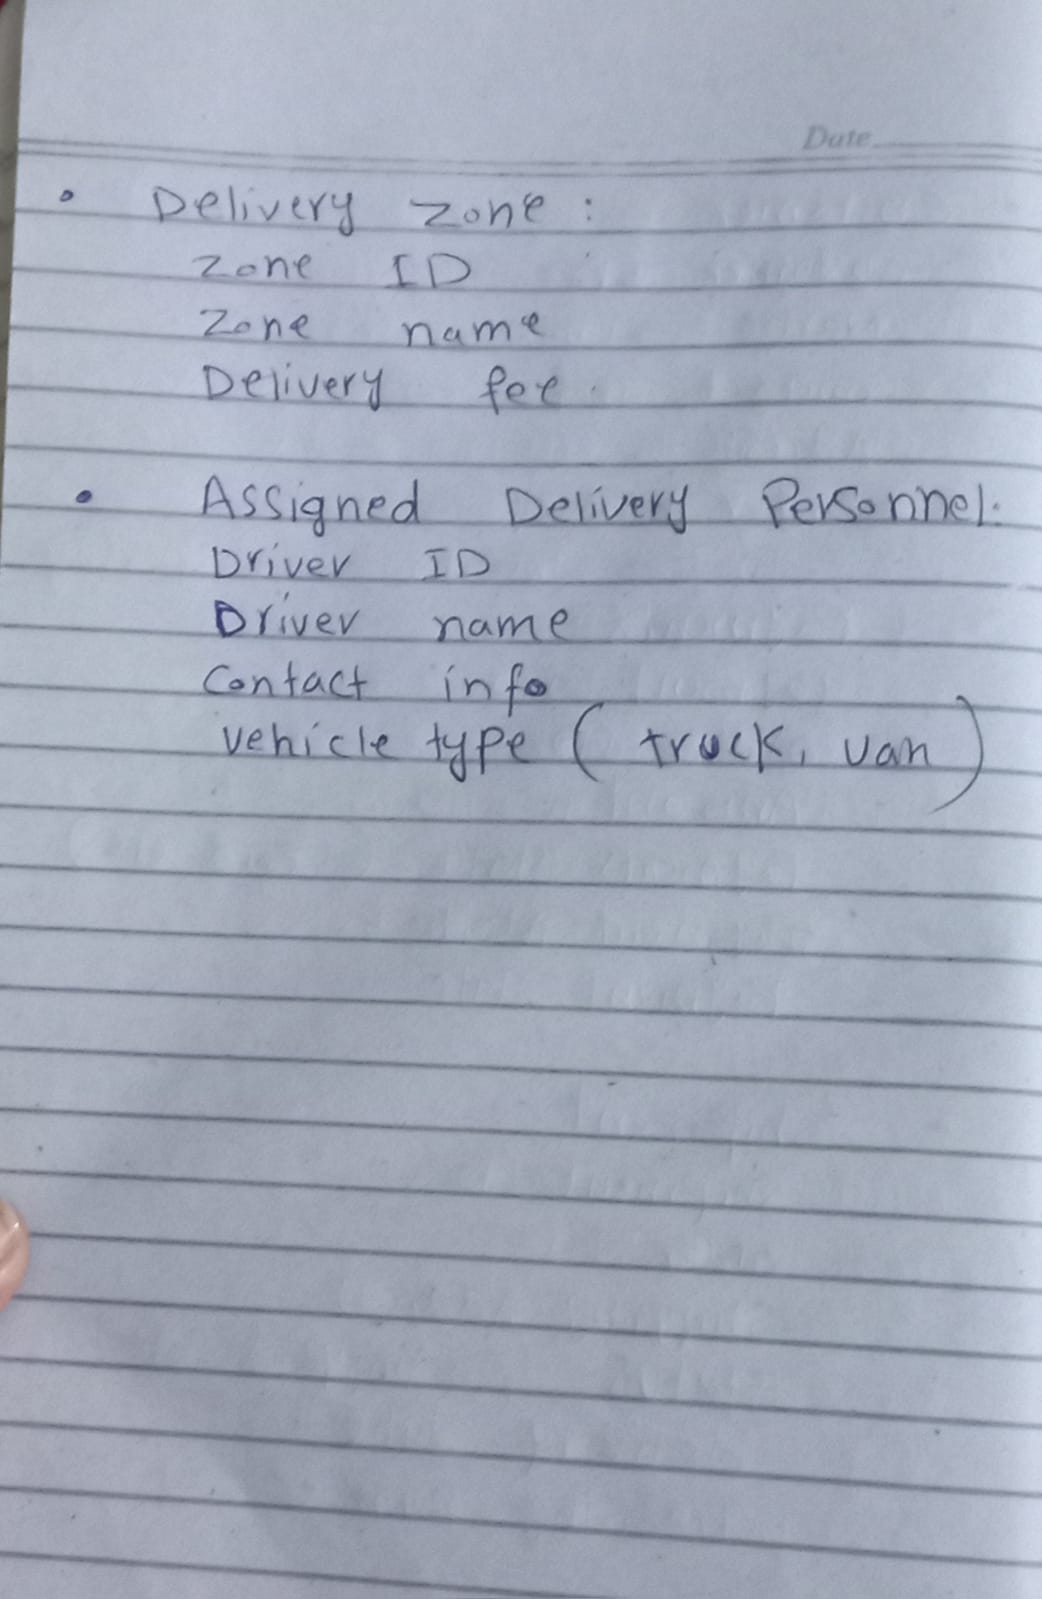 Date
• Delivery zone :
Zone ID
Zone name
Delivery fee.
• Assigned Delivery Personnel:
Driver ID
Driver name
Contact info
vehicle type ( truck, van )